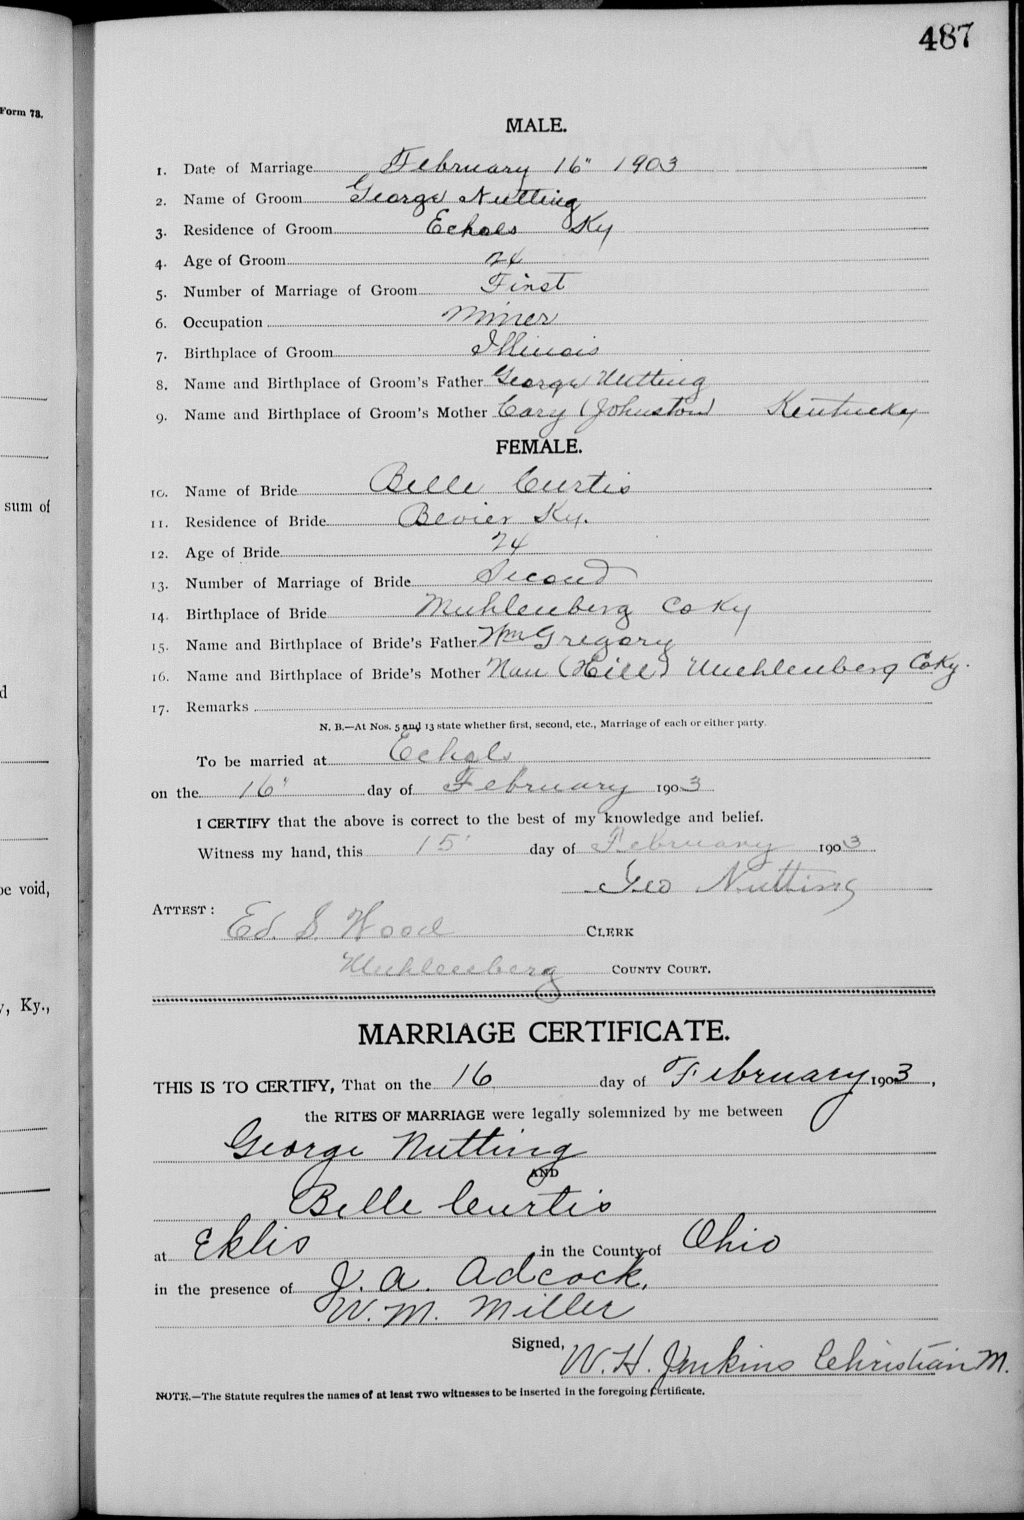 487
Form 78.
MALE.
1. Date of Marriage February 16" 1903
2. Name of Groom George Nutting
3. Residence of Groom Echols Ky
4. Age of Groom 24
5. Number of Marriage of Groom First
6. Occupation Miner
7. Birthplace of Groom Illinois
8. Name and Birthplace of Groom's Father George Nutting
9. Name and Birthplace of Groom's Mother Cary (Johnston) Kentucky
FEMALE.
10. Name of Bride Belle Curtis
sum of
11. Residence of Bride Bevier Ky.
12. Age of Bride 24
13. Number of Marriage of Bride Second
14. Birthplace of Bride Muhlenberg Co Ky
15. Name and Birthplace of Bride's Father Wm Gregory
16. Name and Birthplace of Bride's Mother Nan (Hill) Muehlenberg Co Ky.
d
17. Remarks
N. B.—At Nos. 5 and 13 state whether first, second, etc., Marriage of each or either party.
To be married at Echols
on the 16" day of February 1903
I CERTIFY that the above is correct to the best of my knowledge and belief.
Witness my hand, this 15' day of February 1903
Geo Nutting
be void,
ATTEST:
Ed. S. Wood CLERK
Muhlenberg COUNTY COURT.
y, Ky.,
MARRIAGE CERTIFICATE.
THIS IS TO CERTIFY, That on the 16 day of February 1903,
the RITES OF MARRIAGE were legally solemnized by me between
George Nutting
AND
Belle Curtis
at Eklis in the County of Ohio
in the presence of J. A. Adcock,
W. M. Miller
Signed, W. H. Jenkins Christian M.
NOTE.—The Statute requires the names of at least TWO witnesses to be inserted in the foregoing Certificate.